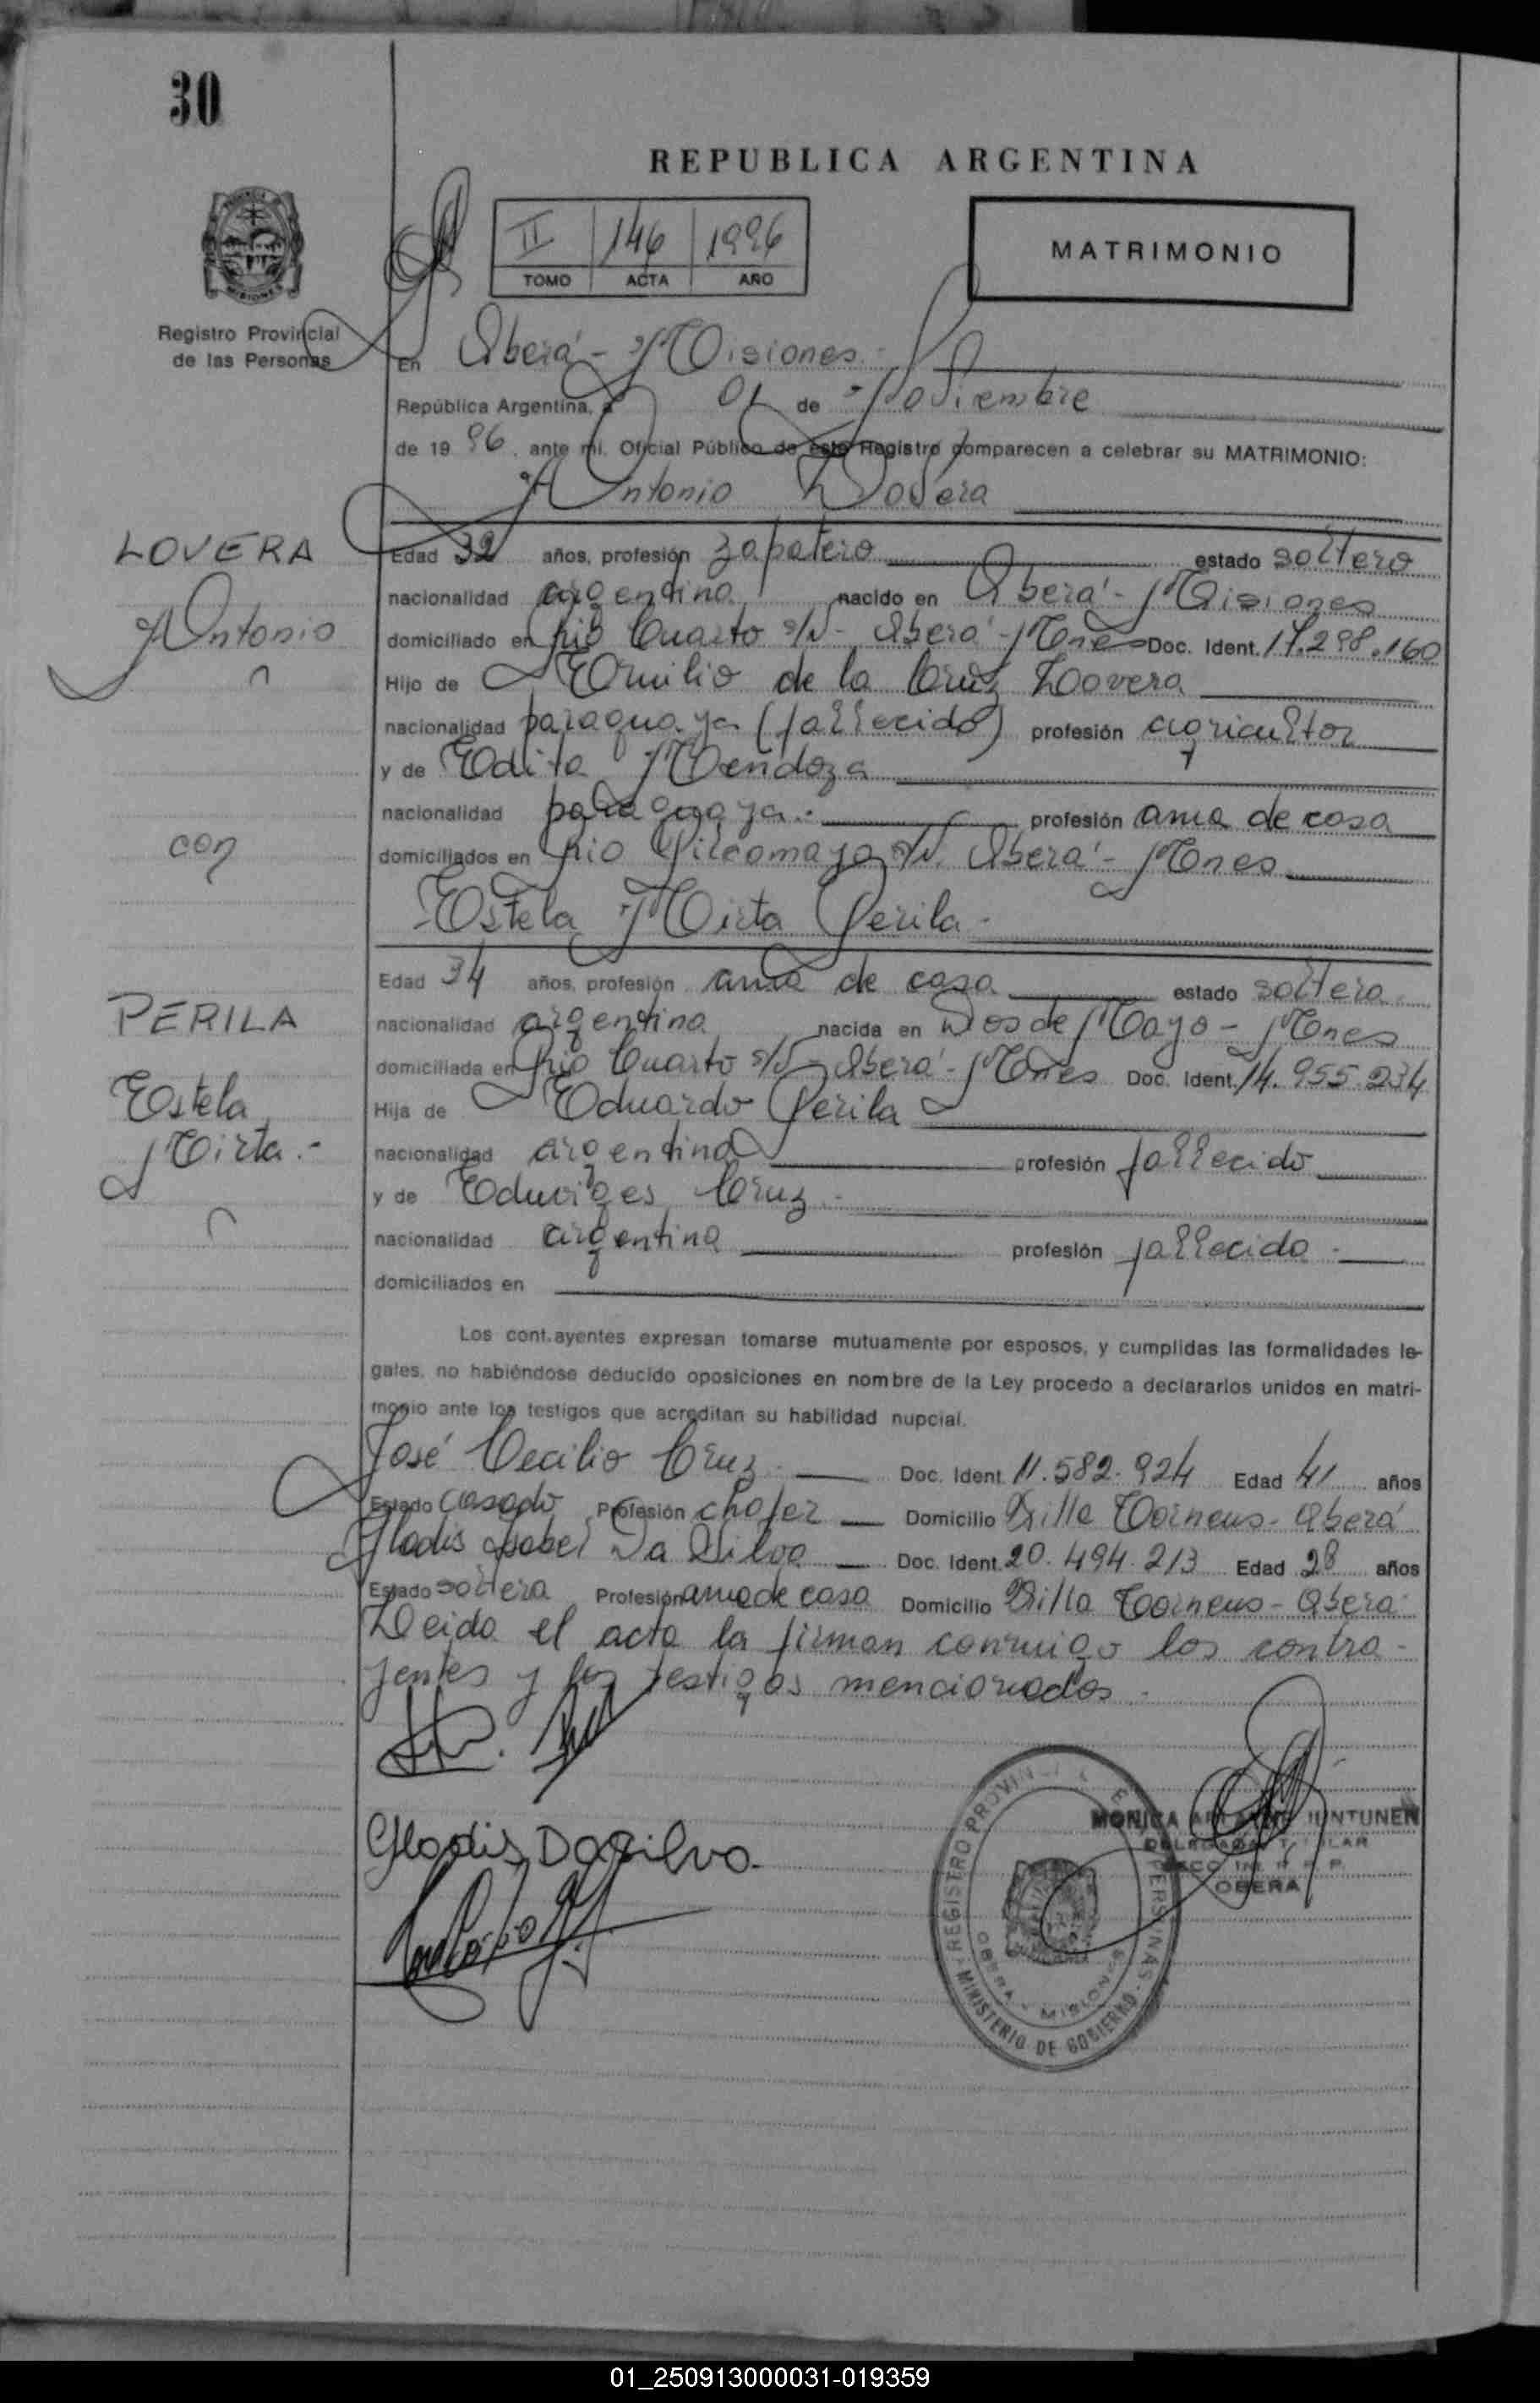 30
REPUBLICA ARGENTINA
II 146 1996
TOMO ACTA AÑO
MATRIMONIO
Registro Provincial
de las Personas
En Oberá - Misiones.-
República Argentina, a 01 de Noviembre
de 1996, ante mi, Oficial Público de este Registro comparecen a celebrar su MATRIMONIO:
Antonio Lovera
LOVERA
Antonio
Edad 32 años, profesión zapatero estado soltero
nacionalidad argentina nacido en Oberá - Misiones
domiciliado en Río Cuarto s/N - Oberá - Mnes Doc. Ident. 17.298.160
Hijo de Emilio de la Cruz Lovera
nacionalidad paraguaya (fallecido) profesión agricultor
y de Edita Mendoza
nacionalidad paraguaya.- profesión ama de casa
con
domiciliados en Río Pilcomayo s/N. Oberá - Mnes
Estela Mirta Perila -
PERILA
Estela
Mirta.-
Edad 34 años, profesión ama de casa estado soltera
nacionalidad argentina nacida en Dos de Mayo - Mnes
domiciliada en Río Cuarto s/N - Oberá - Mnes Doc. Ident. 14.955.234
Hija de Eduardo Perila
nacionalidad argentina profesión fallecido
y de Eduviges Cruz -
nacionalidad argentina profesión fallecida -
domiciliados en
Los contrayentes expresan tomarse mutuamente por esposos, y cumplidas las formalidades le-
gales, no habiéndose deducido oposiciones en nombre de la Ley procedo a declararlos unidos en matri-
monio ante los testigos que acreditan su habilidad nupcial.
José Cecilio Cruz - Doc. Ident. 11.582.924 Edad 41 años
Estado casado Profesión chofer Domicilio Villa Torneus - Oberá
Gladis Isabel Da Silva Doc. Ident. 20.494.213 Edad 28 años
Estado soltera Profesión ama de casa Domicilio Villa Torneus - Oberá
Leida el acta la firman conmigo los contra-
yentes y los testigos mencionados -
Gladis Da Silva.
MONICA IINTUNEN
DELEGADA TITULAR
OBERA
REGISTRO PROVINCIAL DE PERSONAS
OBERA - MISIONES
MINISTERIO DE GOBIERNO
01_250913000031-019359